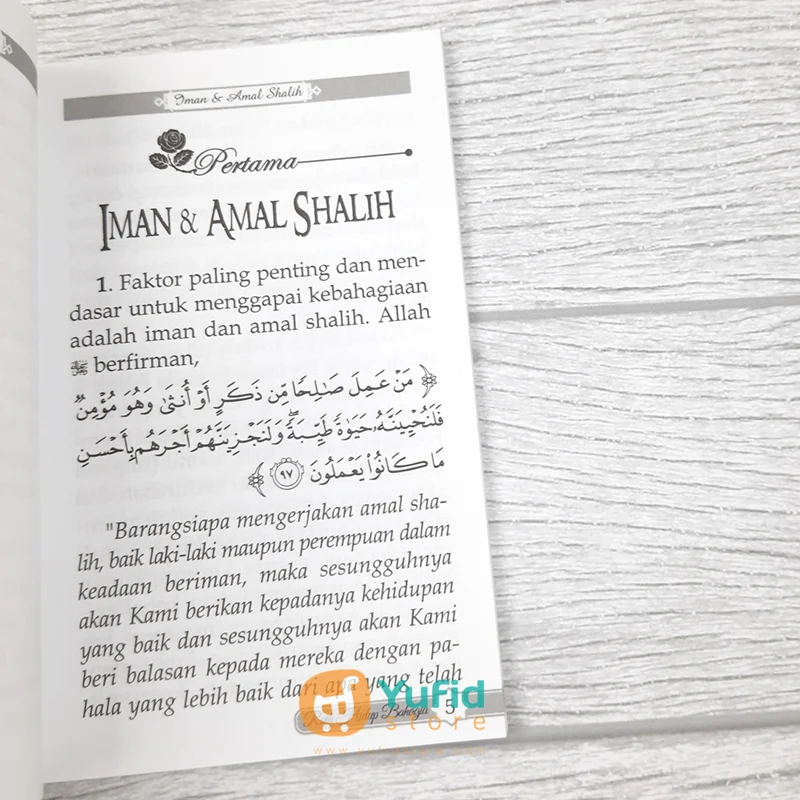 Iman & Amal Shalih
Pertama
IMAN & AMAL SHALIH
1. Faktor paling penting dan men-
dasar untuk menggapai kebahagiaan
adalah iman dan amal shalih. Allah
ﷻ berfirman,
﴿ مَنْ عَمِلَ صَٰلِحًا مِّن ذَكَرٍ أَوْ أُنثَىٰ وَهُوَ مُؤْمِنٌ
فَلَنُحْيِيَنَّهُۥ حَيَوٰةً طَيِّبَةً ۖ وَلَنَجْزِيَنَّهُمْ أَجْرَهُم بِأَحْسَنِ
مَا كَانُوا۟ يَعْمَلُونَ ٩٧ ﴾
"Barangsiapa mengerjakan amal sha-
lih, baik laki-laki maupun perempuan dalam
keadaan beriman, maka sesungguhnya
akan Kami berikan kepadanya kehidupan
yang baik dan sesungguhnya akan Kami
beri balasan kepada mereka dengan pa-
hala yang lebih baik dari apa yang telah
Hidup Bahagia 5
Yufid
store